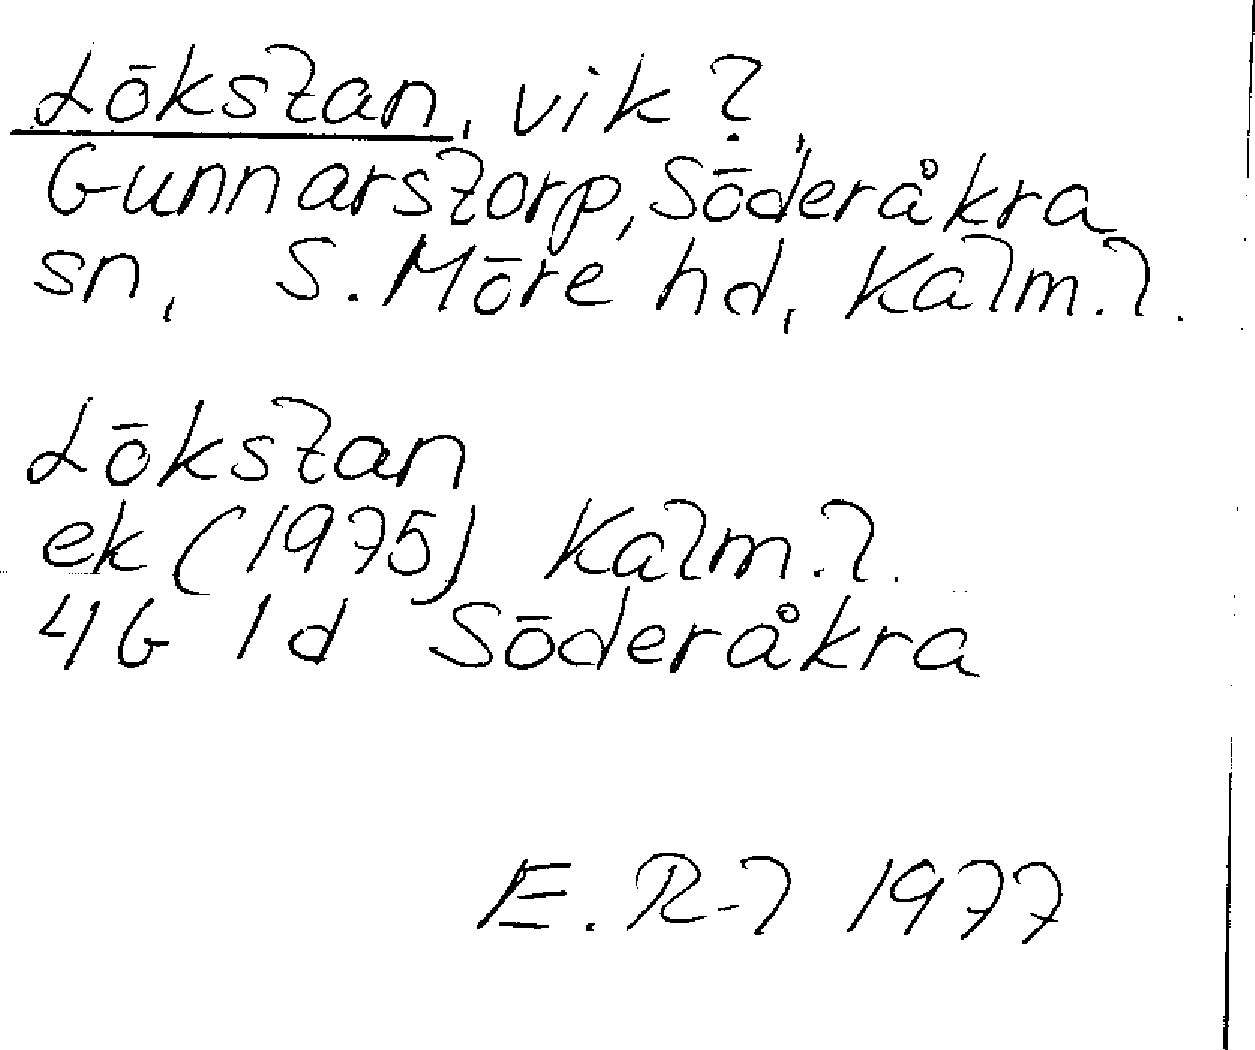 Lökstan, vik?
Gunnarstorp, Söderåkra
sn, S. Möre hd, Kalm. l.
Lökstan
ek (1975) Kalm. l.
4G 1d Söderåkra
E. R-l 1977